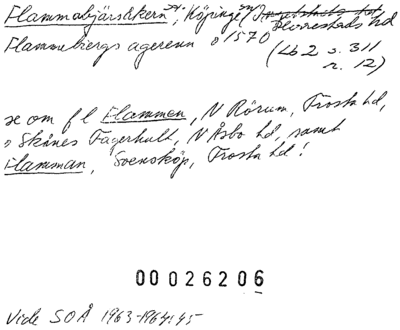 Flammabjärsåkern, Köpinge sn, Herrestads hd
Flammebergs agerenn o 1570 (Lb 2 s. 311
r. 12)
se om f l Flammen, N Rörum, Frosta hd,
o Skånes Fagerhult, N Åsbo hd, samt
Flamman, Svensköp, Frosta hd!
00026206
Vide SOÅ 1963-1964:45